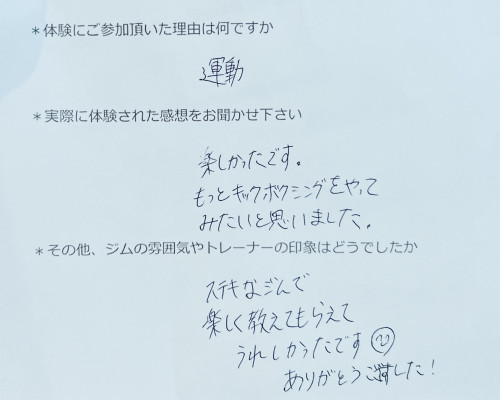 *体験にご参加頂いた理由は何ですか
運動
*実際に体験された感想をお聞かせ下さい
楽しかったです。
もっとキックボクシングをやって
みたいと思いました。
*その他、ジムの雰囲気やトレーナーの印象はどうでしたか
ステキなジムで
楽しく教えてもらえて
うれしかったです
ありがとうございました!